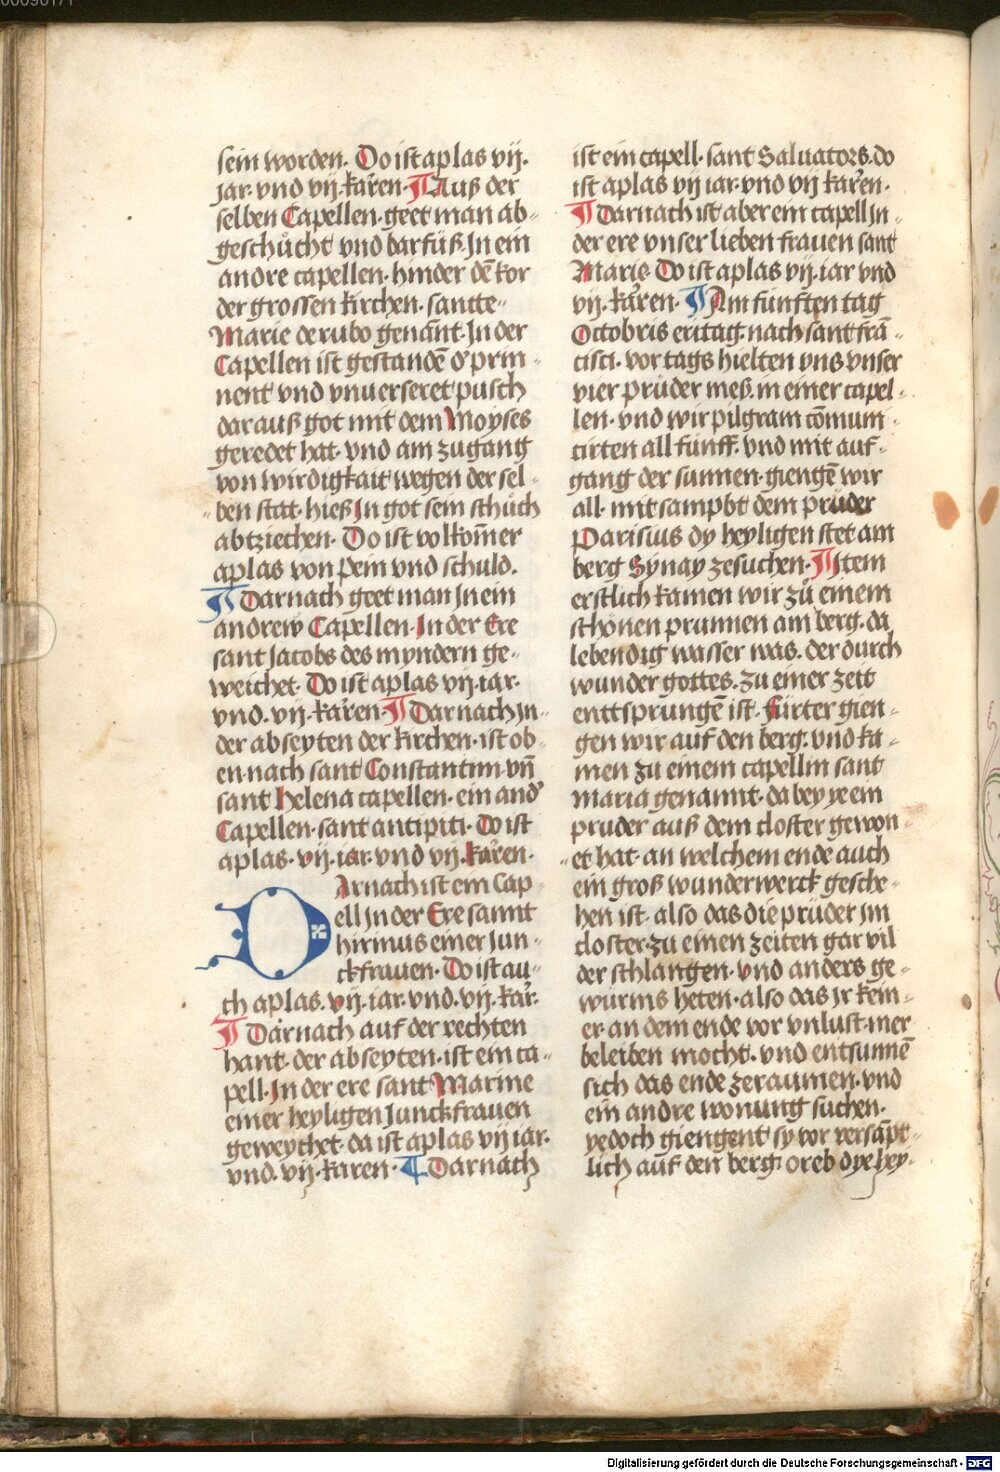 sein worden. Do ist aplas vij.
jar. vnd vij. karen. ¶ Auß der
selben Capellen. geet man ab-
geschůcht vnd barfůß. In ein
andre capellen. hinder dē kor
der grossen kirchen. sancte-
Marie de rubo genānt. In der
Capellen ist gestandē d' prin-
nent vnd vnuerseret pusch
dar auß got mit dem Moyses
geredet hat. vnd am zugang
von wirdigkait wegen der sel-
ben stat. hieß In got sein schůch
abtziechen. Do ist volkom̄er
aplas von pein vnd schuld.
¶ Darnach geet man In ein
andrew Capellen. In der Ere
sant Jacobs des myndern ge-
weichet. Do ist aplas vij. iar.
vnd. vij. karen. ¶ Darnach In-
der abseyten der kirchen. ist ob-
en. nach sant Constantini. vn̄
sant helena capellen. ein and'
Capellen. sant antipiti. Do ist
aplas. vij. iar. vnd vij. karen.
DArnach ist ein Cap-
ell In der Ere sannt
hirmus einer Jun-
ckfrauen. Do ist au-
ch aplas. vij. iar. vnd. vij. kar.
¶ Darnach auf der rechten
hant. der abseyten. ist ein ca-
pell. In der ere sant Marine
einer heyligen Junckfrauen
geweychet. da ist aplas vij iar.
vnd. vij. karen. ¶ Darnach
ist ein capell. sant Saluators. do
ist aplas vij iar. vnd vij karen.
¶ Darnach ist aber ein capell In-
der ere vnser lieben frauen sant
Marie. Do ist aplas vij. iar vnd
vij. karen. ¶ Am fünfften tag
Octobris eritag. nach sant frā-
cisci. vor tags hielten vns vnser
vier prüder meß. in einer capel-
len. vnd wir pilgram cōmuni-
cirten all funff. vnd mit auf-
gang der sunnen. giengē wir
all. mit sampbt dem prüder
Parisius dy heyligen stet am
berg Synay zesuchen. ¶ Item
erstlich kamen wir zů einem
schönen prunnen am berg. da
lebendig wasser was. der durch
wunder gottes. zu einer zeit
enttsprungē ist. fürter gien-
gen wir auf den berg. vnd ka-
men zu einem capellin sant
maria genannt. da bey ye ein
pruder auß dem closter gewon-
et hat. an welchem ende auch
ein groß wunderwerck gesche-
hen ist. also das die prüder im
closter. zu einen zeiten gar vil
der schlangen. vnd anders ge-
würms heten. also das Ir kein-
er. an dem ende vor vnlust. mer
beleiben mocht. vnd entsunnē
sich das ende zeraumen. vnd
ein andre wonung suchen.
yedoch giengent sy vor versāpt-
lich auf den berg. oreb dye hey-
Digitalisierung gefördert durch die Deutsche Forschungsgemeinschaft - DFG